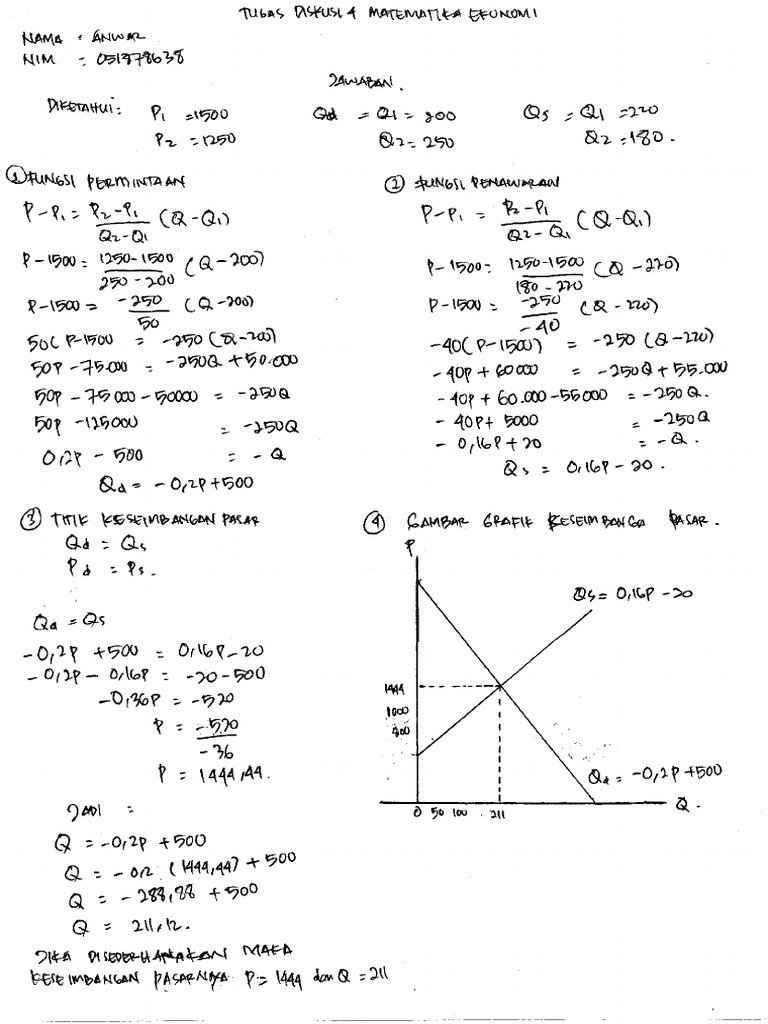 TUGAS DISKUSI 4 MATEMATIKA EKONOMI
NAMA : ANWAR
NIM : 051378638
JAWABAN.
DIKETAHUI: P1 = 1500 Qd = Q1 = 200 Qs = Q1 = 220
P2 = 1250 Q2 = 250 Q2 = 180.
① FUNGSI PERMINTAAN
P-P1 = P2-P1 / Q2-Q1 (Q-Q1)
P-1500 = 1250-1500 / 250-200 (Q-200)
P-1500 = -250 / 50 (Q-200)
50(P-1500 = -250 (Q-200)
50P - 75.000 = -250Q + 50.000
50P - 75000 - 50000 = -250Q
50P - 125000 = -250Q
0,2P - 500 = -Q
Qd = -0,2P+500
② FUNGSI PENAWARAN
P-P1 = P2-P1 / Q2-Q1 (Q-Q1)
P-1500 = 1250-1500 / 180-220 (Q-220)
P-1500 = -250 / -40 (Q-220)
-40(P-1500) = -250 (Q-220)
-40P + 60000 = -250Q + 55.000
-40P + 60.000-55000 = -250Q.
-40P + 5000 = -250Q
-0,16P+20 = -Q.
Qs = 0,16P-20.
③ TITIK KESEIMBANGAN PASAR
Qd = Qs
Pd = Ps.
Qd = Qs
-0,2P +500 = 0,16P-20
-0,2P - 0,16P = -20-500
-0,36P = -520
P = -520 / -36
P = 1444,44.
JADI =
Q = -0,2P +500
Q = -0,2 (1444,44) + 500
Q = -288,88 + 500
Q = 211,12.
JIKA DISEDERHANAKAN MAKA
KESEIMBANGAN PASARNYA P= 1444 dan Q = 211
④ GAMBAR GRAFIK KESEIMBANGA PASAR.
P
Qs = 0,16P-20
1444
1000
500
Qd = -0,2P+500
0 50 100 211 Q.